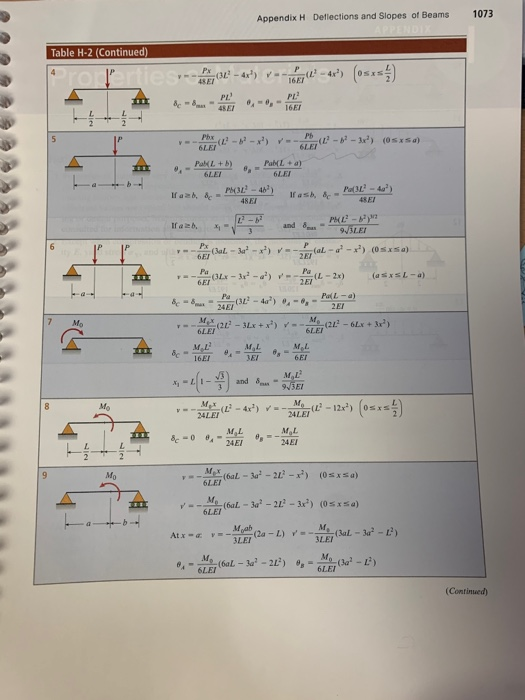 Appendix H Deflections and Slopes of Beams 1073
Table H-2 (Continued)
4 P v = −Px/48EI (3L² − 4x²) v′ = −P/16EI (L² − 4x²) (0 ≤ x ≤ L/2)
L/2 L/2 δC = δmax = PL³/48EI θA = θB = PL²/16EI
5 P v = −Pbx/6LEI (L² − b² − x²) v′ = −Pb/6LEI (L² − b² − 3x²) (0 ≤ x ≤ a)
θA = Pab(L + b)/6LEI θB = Pab(L + a)/6LEI
a b If a ≥ b, δC = Pb(3L² − 4b²)/48EI If a ≤ b, δC = Pa(3L² − 4a²)/48EI
If a ≥ b, x₁ = √(L² − b²/3) and δmax = Pb(L² − b²)^3/2/9√3LEI
6 P P v = −Px/6EI (3aL − 3a² − x²) v′ = −P/2EI (aL − a² − x²) (0 ≤ x ≤ a)
v = −Pa/6EI (3Lx − 3x² − a²) v′ = −Pa/2EI (L − 2x) (a ≤ x ≤ L − a)
a a δC = δmax = Pa/24EI (3L² − 4a²) θA = θB = Pa(L − a)/2EI
7 M₀ v = −M₀x/6LEI (2L² − 3Lx + x²) v′ = −M₀/6LEI (2L² − 6Lx + 3x²)
δC = M₀L²/16EI θA = M₀L/3EI θB = M₀L/6EI
x₁ = L(1 − √3/3) and δmax = M₀L²/9√3EI
8 M₀ v = −M₀x/24LEI (L² − 4x²) v′ = −M₀/24LEI (L² − 12x²) (0 ≤ x ≤ L/2)
L/2 L/2 δC = 0 θA = M₀L/24EI θB = −M₀L/24EI
9 M₀ v = −M₀x/6LEI (6aL − 3a² − 2L² − x²) (0 ≤ x ≤ a)
v′ = −M₀/6LEI (6aL − 3a² − 2L² − 3x²) (0 ≤ x ≤ a)
a b At x = a: v = −M₀ab/3LEI (2a − L) v′ = −M₀/3LEI (3aL − 3a² − L²)
θA = M₀/6LEI (6aL − 3a² − 2L²) θB = M₀/6LEI (3a² − L²)
(Continued)